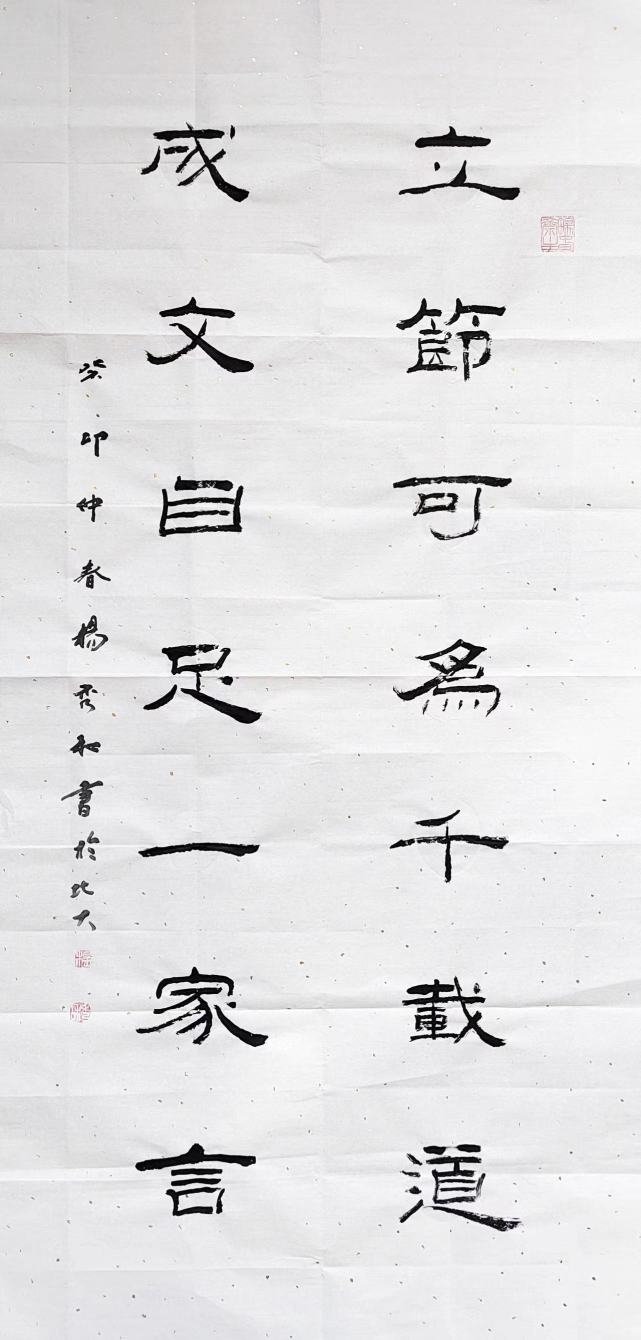 立節可為千載道
成文自足一家言
癸卯仲春楊秀和書於北大